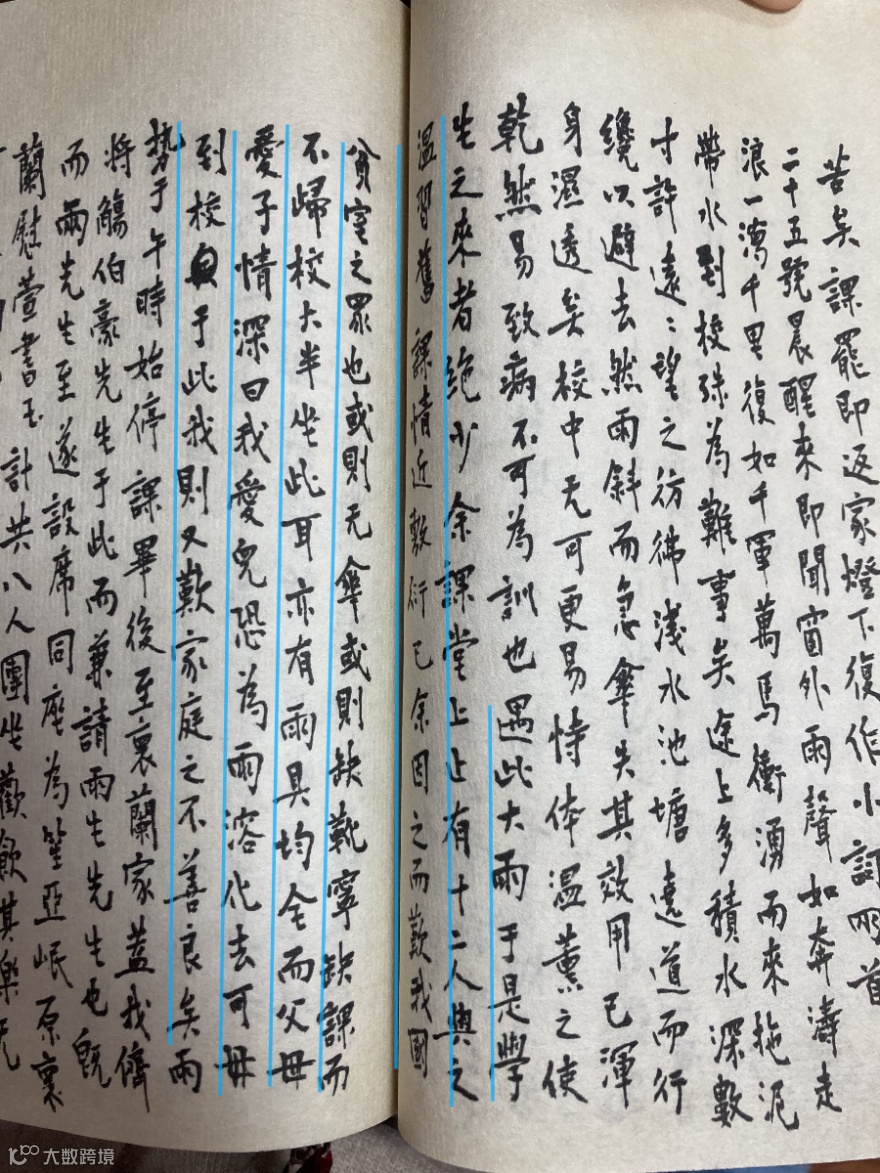 苦矣課罷即返家燈下復作小詞兩首
二十五號晨醒來即聞窗外雨聲如奔濤走
浪一瀉千里復如千軍萬馬衝湧而來拖泥
帶水到校殊為難事矣途上多積水深數
寸許遠〻望之彷彿淺水池塘遠道而行
纔以避去然雨斜而急傘失其效用已渾
身濕透矣校中无可更易恃体溫薰之使
乾然易致病不可為訓也遇此大雨于是學
生之來者绝少余課堂上止有十二人與之
溫習舊課情近敷衍已余因之而歎我國
貧室之眾也或則无傘或則缺靴寧缺課而
不歸校大半坐此耳亦有雨具均全而父母
愛子情深曰我愛兒恐為雨溶化去可毋
到校于此我則又歎家庭之不善良矣雨
勢于午時始停課畢後至裏蘭家蓋我儕
將觴伯豪先生于此而兼請雨生先生也既
而兩先生至遂設席同座為笙亞岷原裏
蘭慰萱書玉計共八人團坐歡飲其樂无
大数跨境